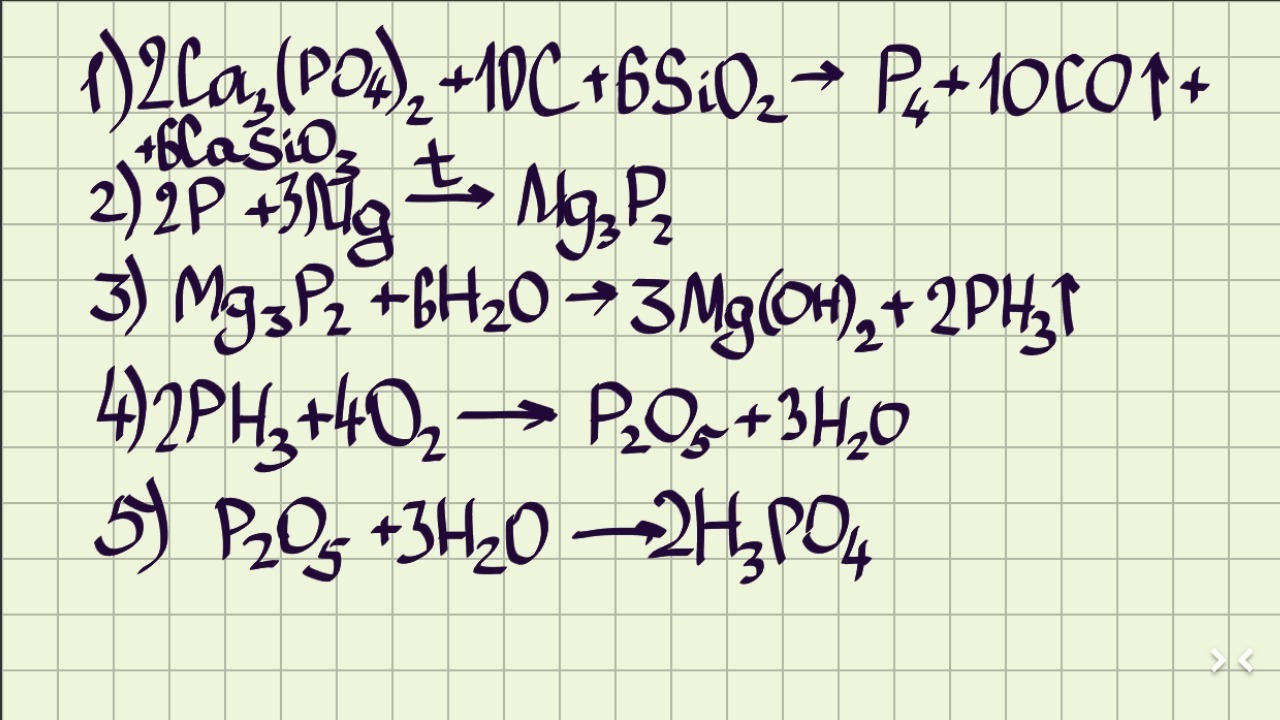 1) 2Ca₃(PO₄)₂ + 10C + 6SiO₂ → P₄ + 10CO↑ +
+6CaSiO₃
2) 2P + 3Mg →ᵗ Mg₃P₂
3) Mg₃P₂ + 6H₂O → 3Mg(OH)₂ + 2PH₃↑
4) 2PH₃ + 4O₂ → P₂O₅ + 3H₂O
5) P₂O₅ + 3H₂O → 2H₃PO₄